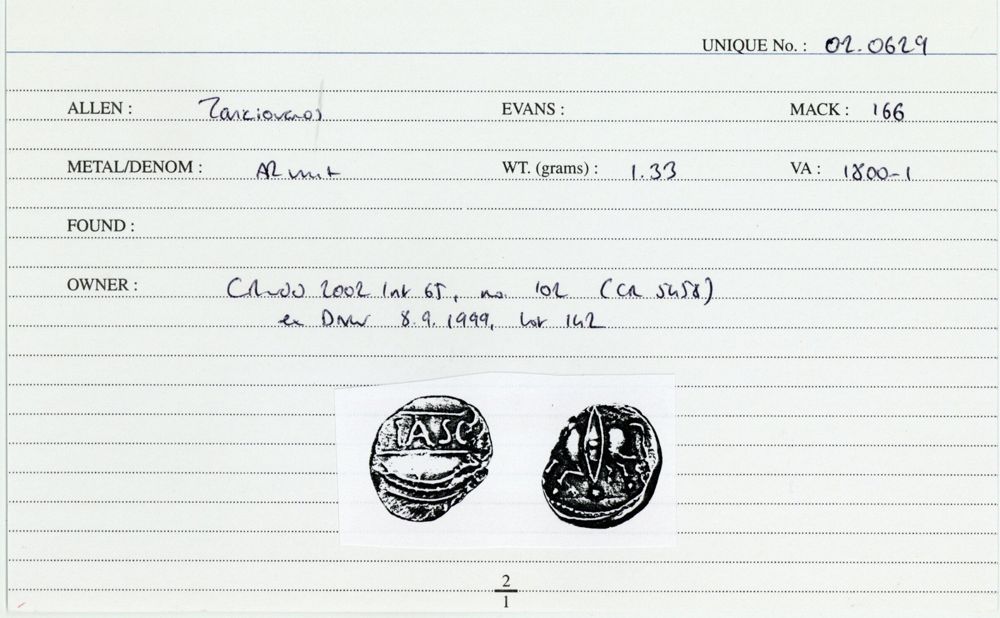 UNIQUE No. : 02.0629
ALLEN : Tasciovanos EVANS : MACK : 166
METAL/DENOM : AR unit WT. (grams) : 1.33 VA : 1800-1
FOUND :
OWNER : 2002 list 65, no. 102 (CR 5458)
ex DNW 8.9.1999, lot 142
TASC
2
1